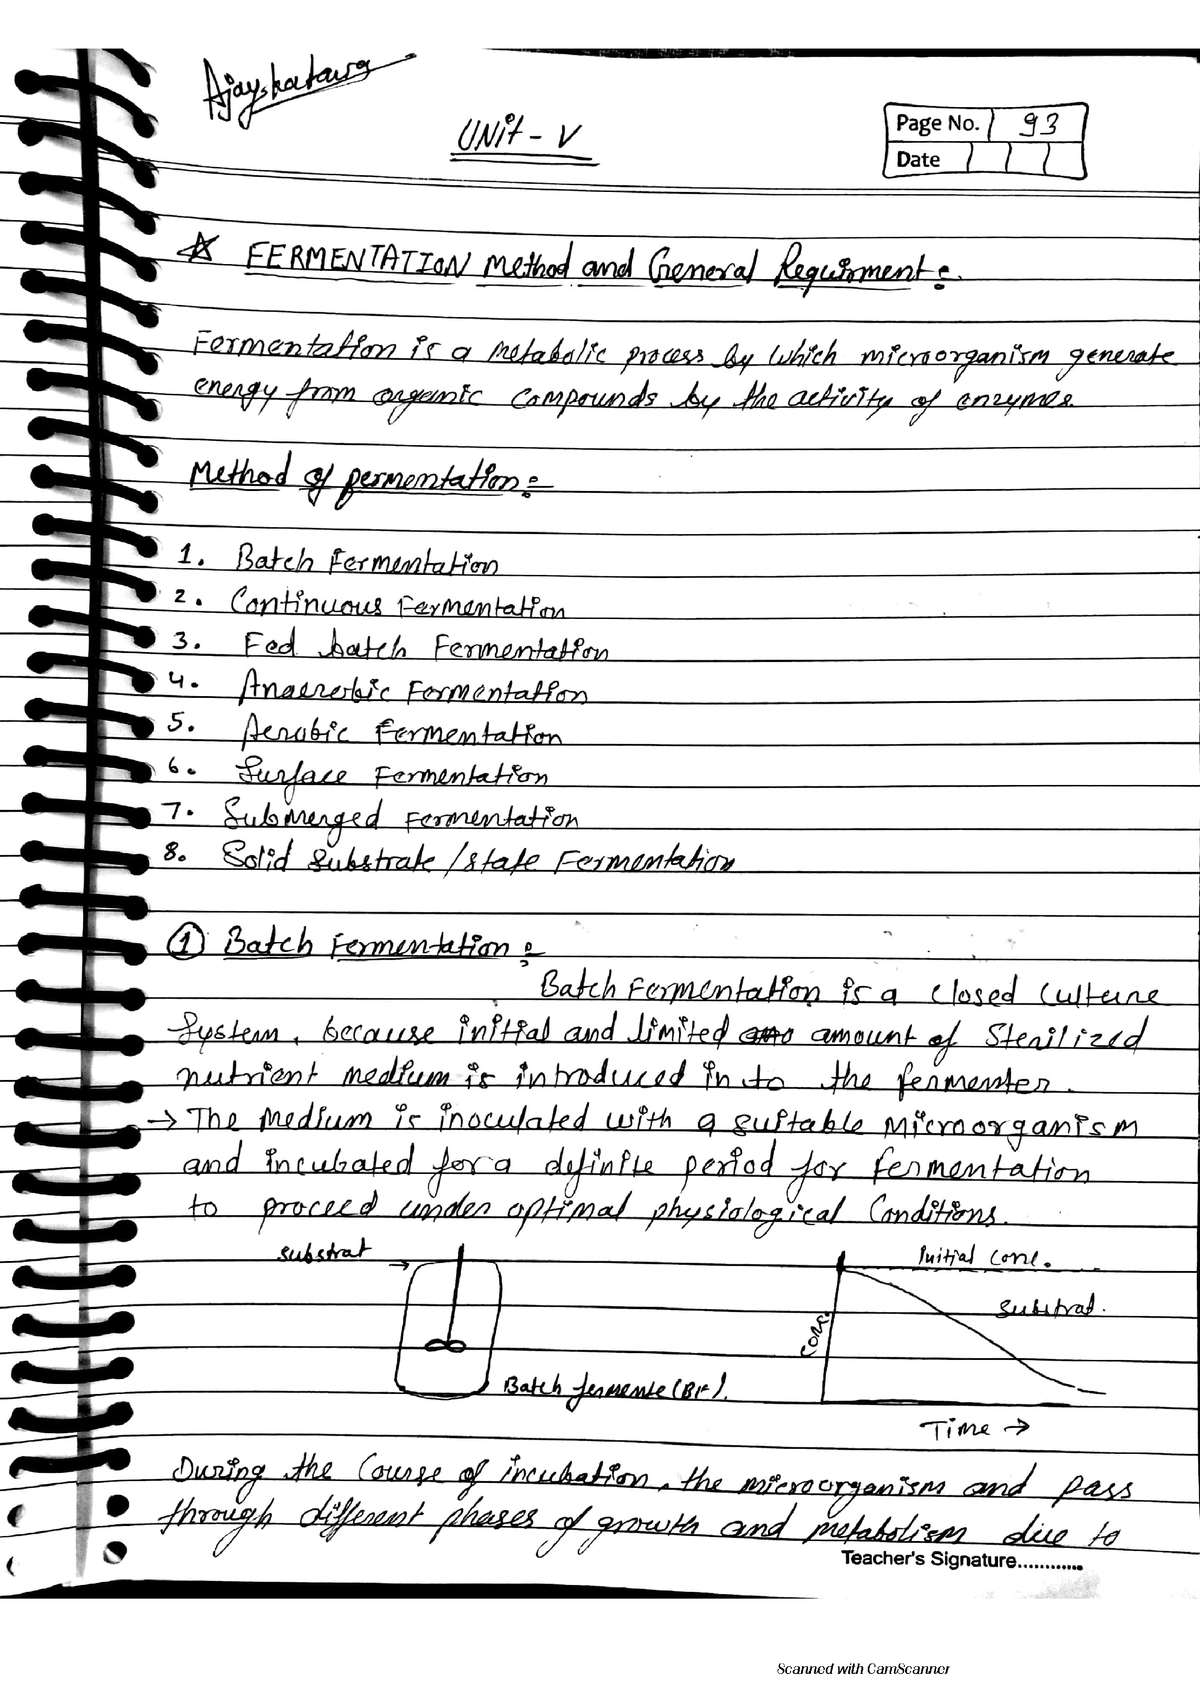 UNit - V
Page No. 93
Date
☆ FERMENTATION Method and General Requirment :-
Fermentation is a metabolic process by which microorganism generate
energy from organic compounds by the activity of enzymes.
Method of permentation :-
1. Batch Fermentation
2. Continuous Fermentation
3. Fed batch Fermentation
4. Anaerobic Fermentation
5. Aerobic Fermentation
6. Surface Fermentation
7. Submerged Fermentation
8. Solid Substrate / State Fermentation
① Batch Fermentation :-
Batch Fermentation is a closed culture
System, because initial and limited amount of Sterilized
nutrient medium is introduced in to the fermenter.
→ The medium is inoculated with a suitable microorganism
and incubated for a definite period for fermentation
to proceed under optimal physiological Conditions.
substrat
Initial conc.
substrat.
conc.
Batch fermente (BF).
Time →
During the Course of incubation, the microorganism and pass
through different phases of growth and metabolism due to
Teacher's Signature............
Scanned with CamScanner